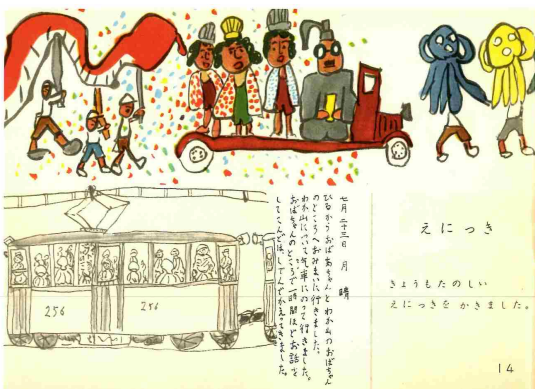 えにっき
きょうもたのしい
えにっきを かきました。
七月二十三日 月 晴
ひるから おばあちゃんと わか山のおばちゃん
のところへおみまいに行きました。
わか山 にのって行きました。
おばちゃんのところで一時間ほどお話を
して かえってきました。
256
256
14